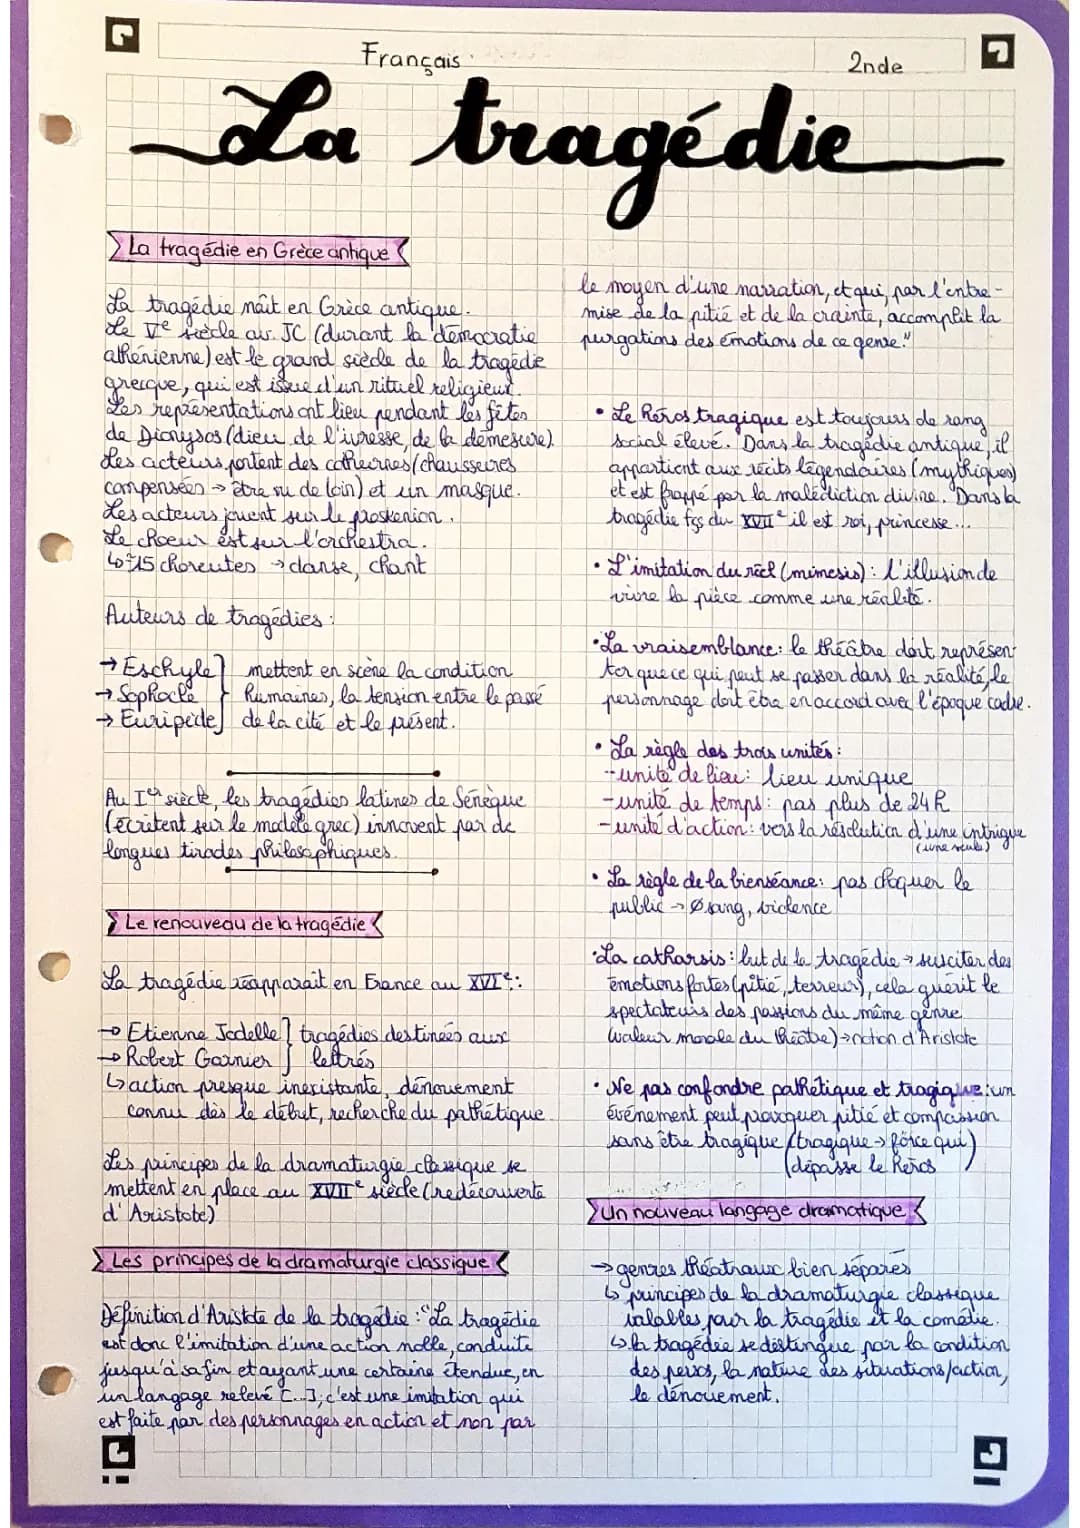 Français
2nde
La tragédie
La tragédie en Grèce antique
La tragédie naît en Grèce antique.
Le Ve siècle av. JC (durant la démocratie
athénienne) est le grand siècle de la tragédie
grecque, qui est issue d'un rituel religieux.
Les représentations ont lieu pendant les fêtes
de Dionysos (dieu de l'ivresse, de la démesure)
Les acteurs portent des cothurnes (chaussures
compensées → être vu de loin) et un masque.
Les acteurs jouent sur le proskenion.
Le choeur est sur l'orchestra.
↳ 15 choreutes → danse, chant
Auteurs de tragédies :
→ Eschyle
→ Sophocle
→ Euripide
mettent en scène la condition
humaines, la tension entre le passé
de la cité et le présent.
Au Ier siècle, les tragédies latines de Sénèque
(écritent sur le modèle grec) innovent par de
longues tirades philosophiques.
Le renouveau de la tragédie
La tragédie réapparaît en France au XVIe :
→ Etienne Jodelle
→ Robert Garnier
tragédies destinées aux
lettrés
↳ action presque inexistante, dénouement
connu dès le début, recherche du pathétique.
Les principes de la dramaturgie classique se
mettent en place au XVIIe siècle (redécouverte
d'Aristote)
Les principes de la dramaturgie classique
Définition d'Aristote de la tragédie : "La tragédie
est donc l'imitation d'une action noble, conduite
jusqu'à sa fin et ayant une certaine étendue, en
un langage relevé [...], c'est une imitation qui
est faite par des personnages en action et non par
le moyen d'une narration, et qui, par l'entre-
mise de la pitié et de la crainte, accomplit la
purgations des émotions de ce genre."
• Le héros tragique est toujours de rang
social élevé. Dans la tragédie antique, il
appartient aux récits légendaires (mythiques)
et est frappé par la malédiction divine. Dans la
tragédie fçs du XVIIe il est roi, princesse...
• L'imitation du réel (mimesis) : l'illusion de
vivre la pièce comme une réalité.
• La vraisemblance : le théâtre doit représen
ter que ce qui peut se passer dans la réalité, le
personnage doit être en accord avec l'époque cadre.
• La règle des trois unités :
- unité de lieu : lieu unique
- unité de temps : pas plus de 24h
- unité d'action : vers la résolution d'une intrigue
(une seule)
• La règle de la bienséance : pas choquer le
public → Ø sang, violence
• La catharsis : but de la tragédie → susciter des
émotions fortes (pitié, terreur), cela guérit le
spectateurs des passions du même genre
(valeur morale du théâtre) → notion d'Aristote
• Ne pas confondre pathétique et tragique : un
événement peut provoquer pitié et compassion
sans être tragique (tragique → force qui
dépasse le héros)
Un nouveau langage dramatique
→ genres théatraux bien séparés
↳ principes de la dramaturgie classique
valables pour la tragédie et la comédie.
↳ la tragédie se distingue par la condition
des persos, la nature des situations/action,
le dénouement.